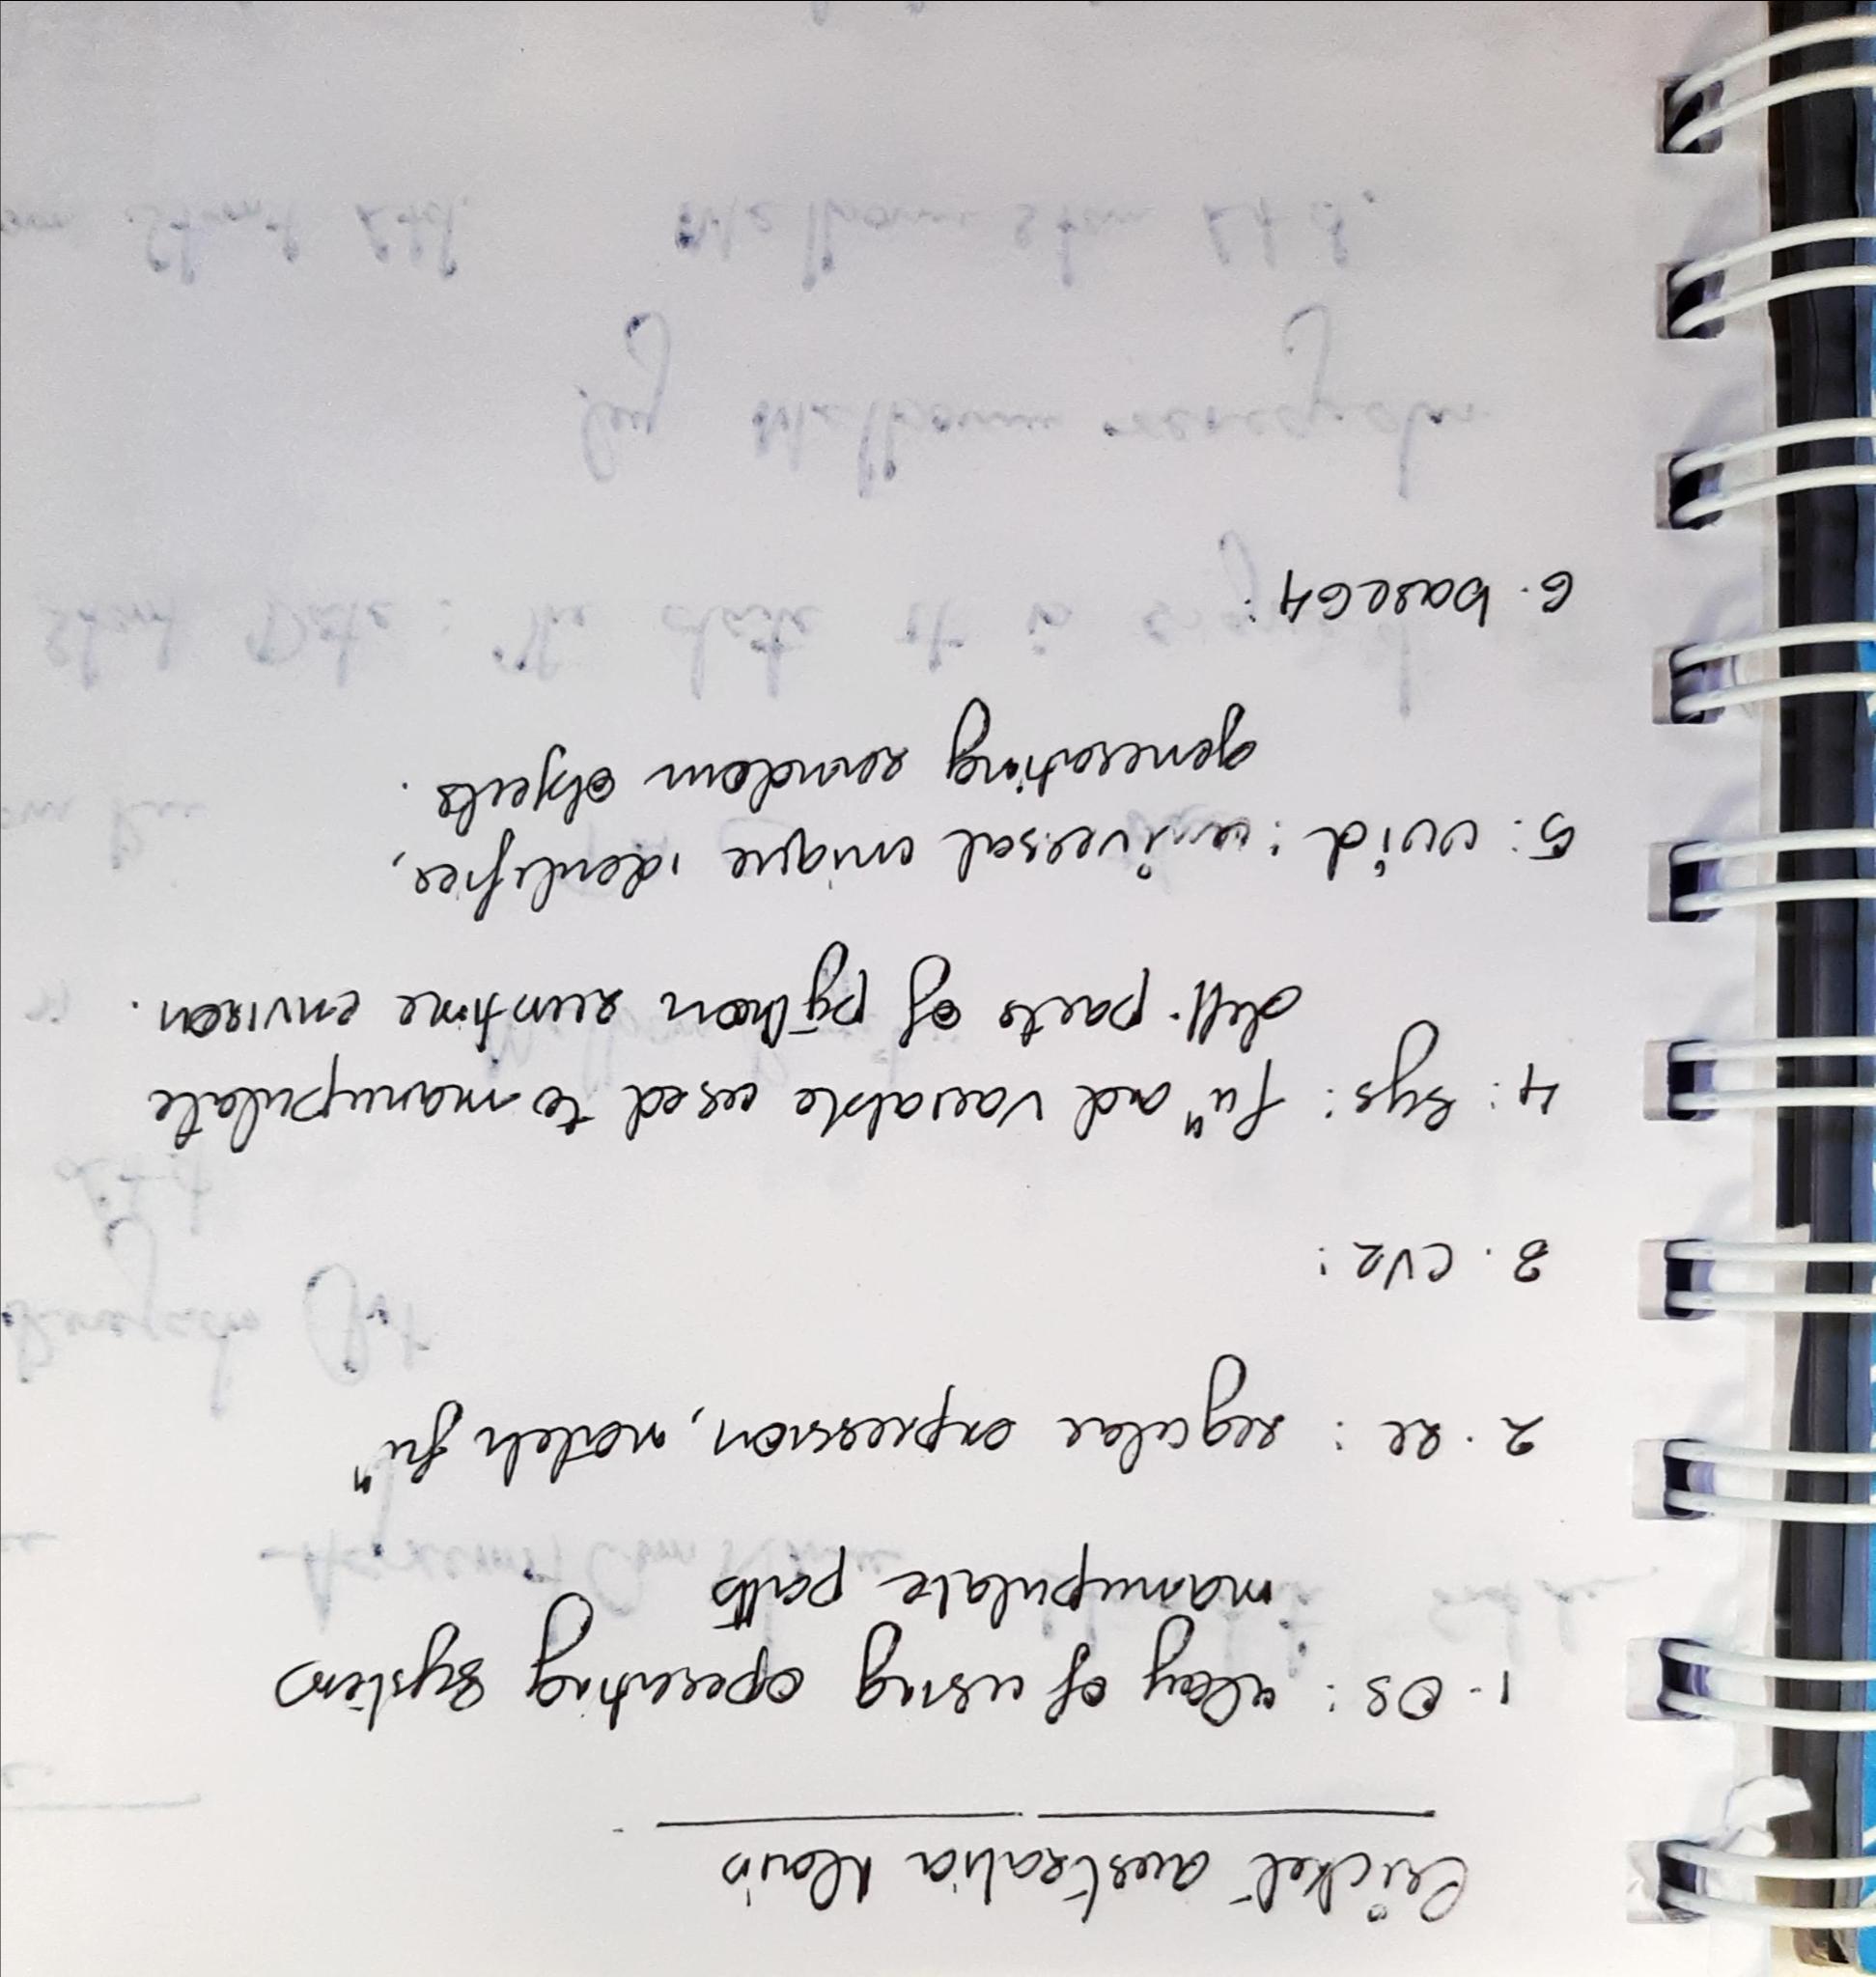 Cricket australia Main
1. OS: Way of using operating system
manipulate paths
2. re: regular expression, match fuⁿ
3. CV2:
4: Sys: fuⁿ and variable used to manipulate
diff. parts of python runtime environ.
5: uuid: universal unique identifier,
generating random objects.
6. base64: